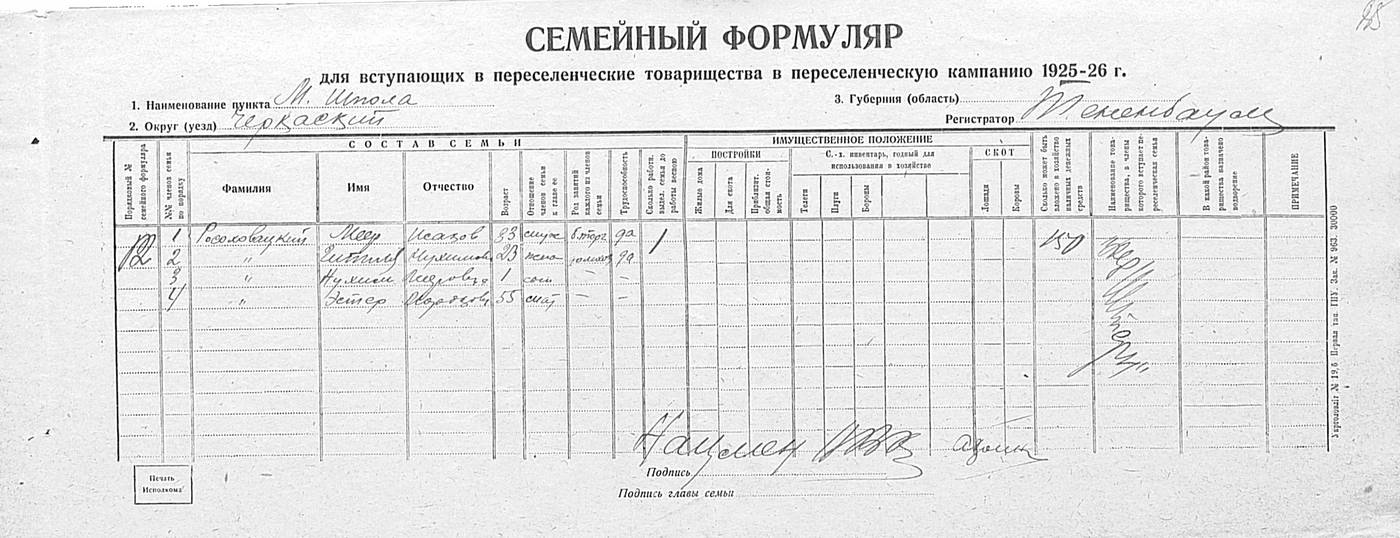 СЕМЕЙНЫЙ ФОРМУЛЯР
для вступающих в переселенческие товарищества в переселенческую кампанию 1925-26 г.
1. Наименование пункта М. Шпола
3. Губерния (область)
2. Округ (уезд) Черкаский
Регистратор Тененбаум
СОСТАВ СЕМЬИ
ИМУЩЕСТВЕННОЕ ПОЛОЖЕНИЕ
Порядковый № семейного формуляра
№№ членов семьи по порядку
Фамилия
Имя
Отчество
Возраст
Отношение членов семьи к главе ее
Род занятий каждого из членов семьи
Трудоспособность
Сколько работн. выдел. семья до работы весною
ПОСТРОЙКИ
Жилые дома
Для скота
Приблизит. общая стоимость
С.-х. инвентарь, годный для использования в хозяйстве
Телеги
Плуги
Бороны
СКОТ
Лошади
Коровы
Сколько может быть вложено в хозяйство наличных денежных средств
Наименование товарищества, в члены которого вступает переселенческая семья
В какой район товарищества назначено водворение
ПРИМЕЧАНИЕ
12 1 Меер Исаков 33 да 1 150
2 " 23 жена да
3 " Нухим 1 сын — —
4 " Эстер 55 мат — —
Нацмен
Подпись
Подпись главы семьи
Печать Исполкома
Укрголовліт № 19,6 Первая тип. ГПУ. Зак. № 963. 30000